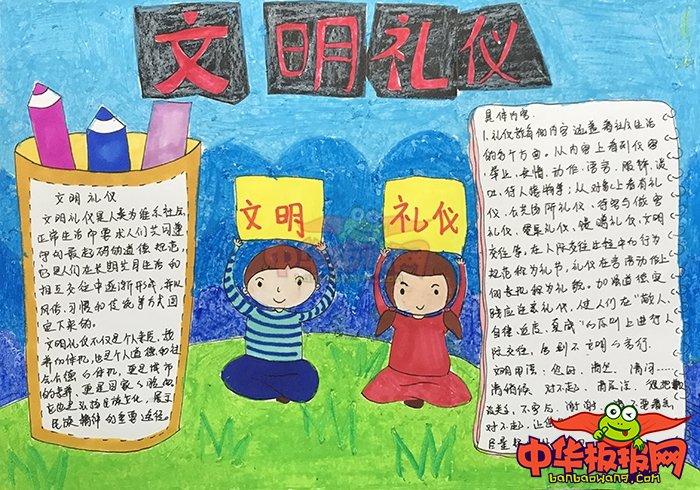 文明礼仪
文明
礼仪
文明礼仪
文明礼仪是人类为维系社会
正常生活而要求人们共同遵
守的最起码的道德规范,
它是人们在长期共同生活和
相互交往中逐渐形成,并以
风俗、习惯和传统等方式固
定下来的。
文明礼仪不仅是个人素质、教
养的体现,也是个人道德和社
会公德的体现,更是城市
的脸面,更是国家的脸面
民族精神的重要途径。
具体内容:
1.礼仪教育的内容涵盖着社会生活
的各个方面。从内容上看有仪容、
举止、表情、动作、语言、服饰、谈
吐、待人接物等;从对象上看有礼
仪、公共场所礼仪、待客与做客
礼仪、餐桌礼仪、馈赠礼仪、文明
交往等。在人际交往过程中的行为
规范称为礼节,礼仪在言语动作上
的表现称为礼貌。加强道德实
践应注意礼仪,使人们在"敬人、
自律、适度、真诚"的原则上进行人
际交往,告别不文明的言行。
文明用语:您好、请坐、请问
请稍候、对不起、请原谅、很抱歉
没关系、不客气、谢谢
对不起
中华板报网
banbaowang.com